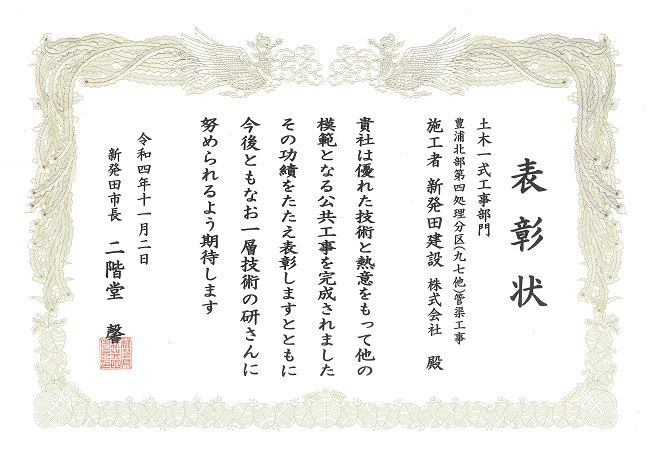 表彰状
土木一式工事部門
豊浦北部第四処理分区(九七他)管渠工事
施工者 新発田建設 株式会社 殿
貴社は優れた技術と熱意をもって他の
模範となる公共工事を完成されました
その功績をたたえ表彰しますとともに
今後ともなお一層技術の研さんに
努められるよう期待します
令和四年十一月二日
新発田市長 二階堂 馨